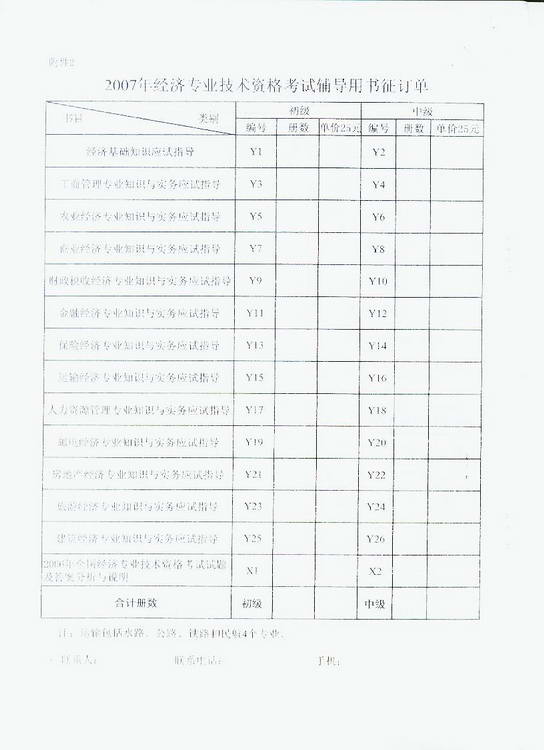 附件2
2007年经济专业技术资格考试辅导用书征订单
书目 类别 初级 中级
编号 册数 单价25元 编号 册数 单价25元
经济基础知识应试指导 Y1 Y2
工商管理专业知识与实务应试指导 Y3 Y4
农业经济专业知识与实务应试指导 Y5 Y6
商业经济专业知识与实务应试指导 Y7 Y8
财政税收经济专业知识与实务应试指导 Y9 Y10
金融经济专业知识与实务应试指导 Y11 Y12
保险经济专业知识与实务应试指导 Y13 Y14
运输经济专业知识与实务应试指导 Y15 Y16
人力资源管理专业知识与实务应试指导 Y17 Y18
邮电经济专业知识与实务应试指导 Y19 Y20
房地产经济专业知识与实务应试指导 Y21 Y22
旅游经济专业知识与实务应试指导 Y23 Y24
建筑经济专业知识与实务应试指导 Y25 Y26
2006年全国经济专业技术资格考试试题
及答案分析与说明 X1 X2
合计册数 初级 中级
注：运输包括水路、公路、铁路和民航4个专业。
联系人： 联系电话： 手机：